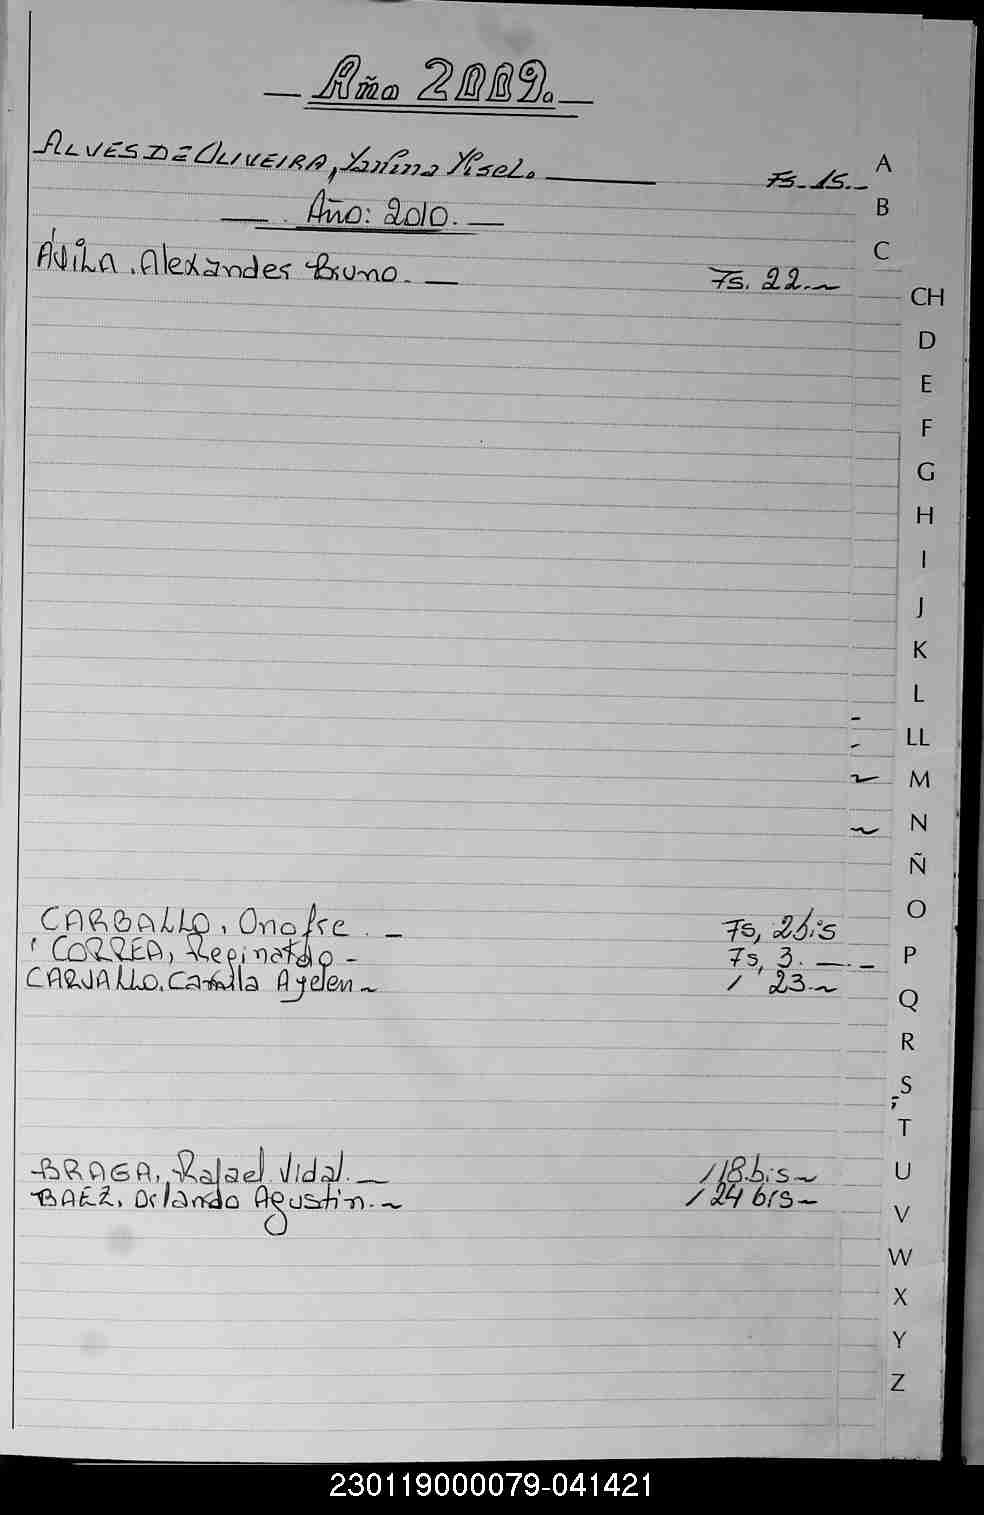 Año 2009.
ALVES DE OLIVEIRA, Yanina Yisel. Fs. 15.
Año: 2010.
ÁVILA. Alexander Bruno. Fs. 22.
CARBALLO, Onofre. Fs, 2bis
CORREA, Reginaldo Fs, 3.
CARVALLO. Camila Ayelen / 23.
BRAGA, Rafael Vidal. / 18.bis
BAEZ. Orlando Agustin. / 24 bis
A
B
C
CH
D
E
F
G
H
I
J
K
L
LL
M
N
Ñ
O
P
Q
R
S
T
U
V
W
X
Y
Z
230119000079-041421